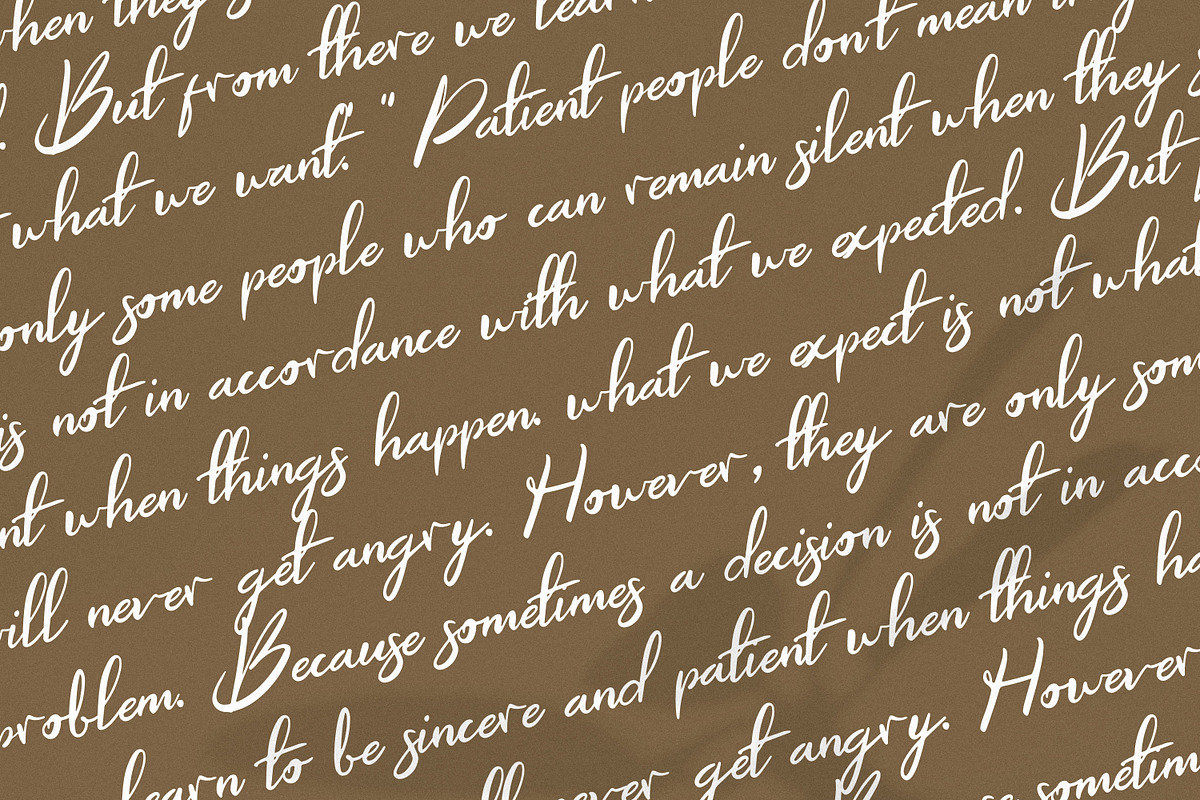 when they
. But from there we learn
what we want." " Patient people don't mean
only some people who can remain silent when they
is not in accordance with what we expected. But
nt when things happen. what we expect is not what
will never get angry. However, they are only som
problem. Because sometimes a decision is not in acco
learn to be sincere and patient when things ha
never get angry. However
sometim